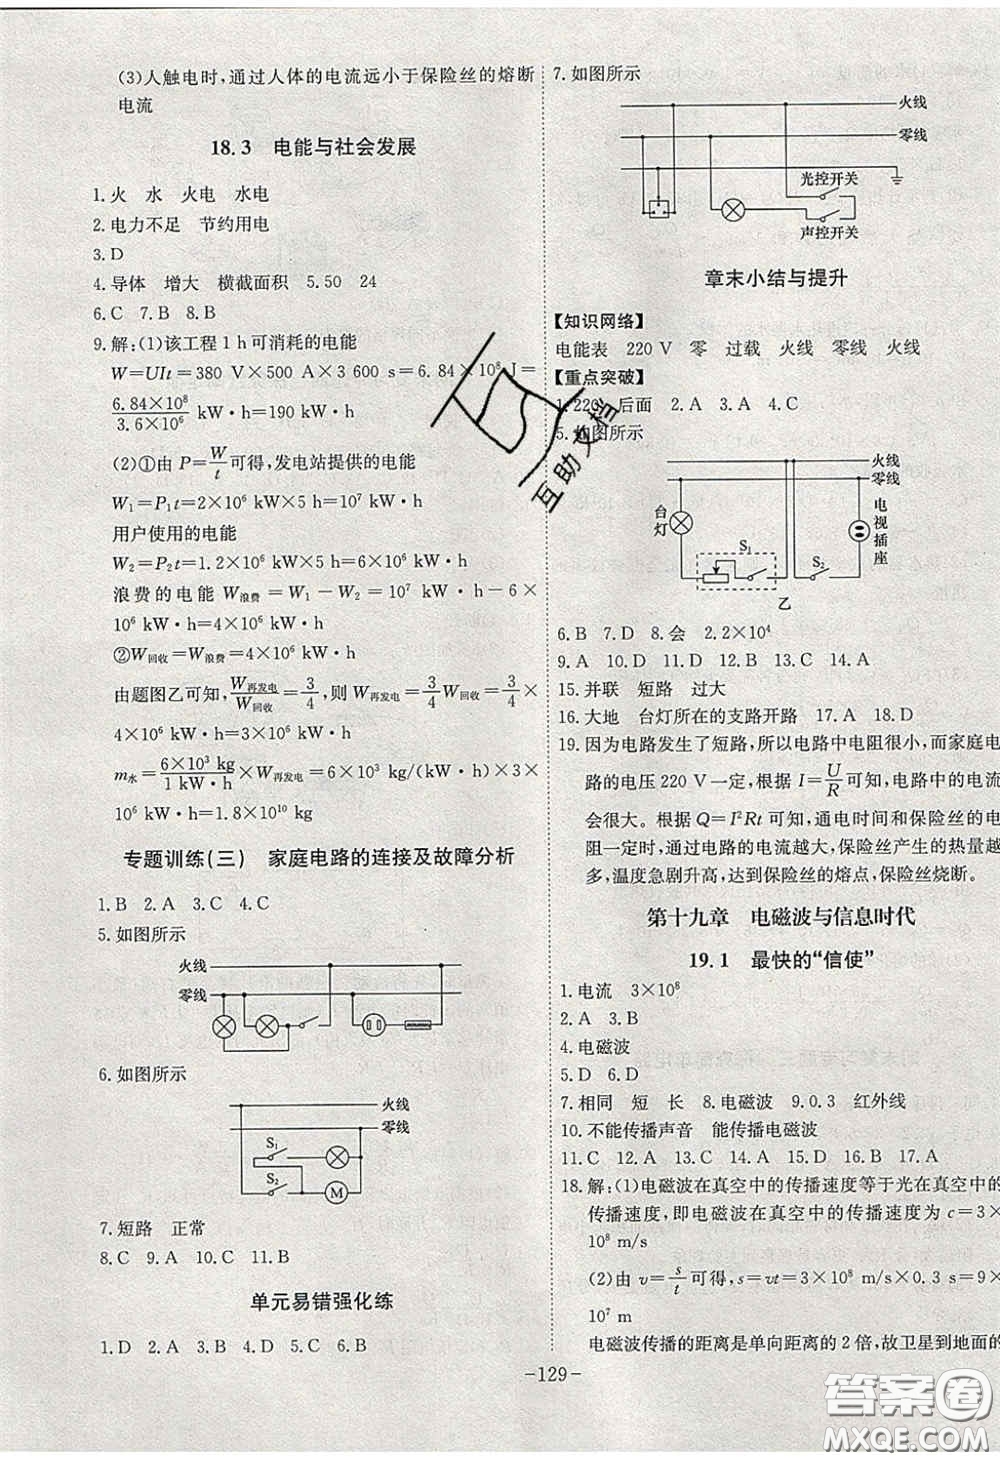 (3)人触电时,通过人体的电流远小于保险丝的熔断
电流
18.3 电能与社会发展
1.火 水 火电 水电
2.电力不足 节约用电
3.D
4.导体 增大 横截面积 5.50 24
6.C 7.B 8.B
9.解:(1)该工程1 h可消耗的电能
W=UIt=380 V×500 A×3 600 s=6.84×10⁸ J=
6.84×10⁸/3.6×10⁶ kW·h=190 kW·h
(2)①由P=W/t可得,发电站提供的电能
W₁=P₁t=2×10⁶ kW×5 h=10⁷ kW·h
用户使用的电能
W₂=P₂t=1.2×10⁶ kW×5 h=6×10⁶ kW·h
浪费的电能W浪费=W₁-W₂=10⁷ kW·h-6×
10⁶ kW·h=4×10⁶ kW·h
②W回收=W浪费=4×10⁶ kW·h
由题图乙可知,W再发电/W回收=3/4,则W再发电=3/4W回收=3/4×
4×10⁶ kW·h=3×10⁶ kW·h
m水=6×10³ kg/1 kW·h×W再发电=6×10³ kg/(kW·h)×3×
10⁶ kW·h=1.8×10¹⁰ kg
专题训练(三) 家庭电路的连接及故障分析
1.B 2.A 3.C 4.C
5.如图所示
火线
零线
6.如图所示
火线
零线
S₁
S₂
M
7.短路 正常
8.C 9.A 10.C 11.B
单元易错强化练
1.D 2.A 3.B 4.D 5.C 6.B
7.如图所示
火线
零线
光控开关
声控开关
章末小结与提升
【知识网络】
电能表 220 V 零 过载 火线 零线 火线
【重点突破】
1.220 后面 2.A 3.A 4.C
5.如图所示
火线
零线
台灯
S₁
S₂
电视插座
乙
6.B 7.D 8.会 2.2×10⁴
9.A 10.D 11.D 12.B 13.C 14.A
15.并联 短路 过大
16.大地 台灯所在的支路开路 17.A 18.D
19.因为电路发生了短路,所以电路中电阻很小,而家庭电
路的电压220 V一定,根据I=U/R可知,电路中的电流
会很大。根据Q=I²Rt可知,通电时间和保险丝的电
阻一定时,通过电路的电流越大,保险丝产生的热量越
多,温度急剧升高,达到保险丝的熔点,保险丝烧断。
第十九章 电磁波与信息时代
19.1 最快的“信使”
1.电流 3×10⁸
2.A 3.B
4.电磁波
5.D 6.D
7.相同 短 长 8.电磁波 9.0.3 红外线
10.不能传播声音 能传播电磁波
11.C 12.A 13.C 14.A 15.D 16.B 17.A
18.解:(1)电磁波在真空中的传播速度等于光在真空中的
传播速度,即电磁波在真空中的传播速度为c=3×
10⁸ m/s
(2)由v=s/t可得,s=vt=3×10⁸ m/s×0.3 s=9×
10⁷ m
电磁波传播的距离是单向距离的2倍,故卫星到地面的
-129-
互助文档
答案圈
MXQE.COM